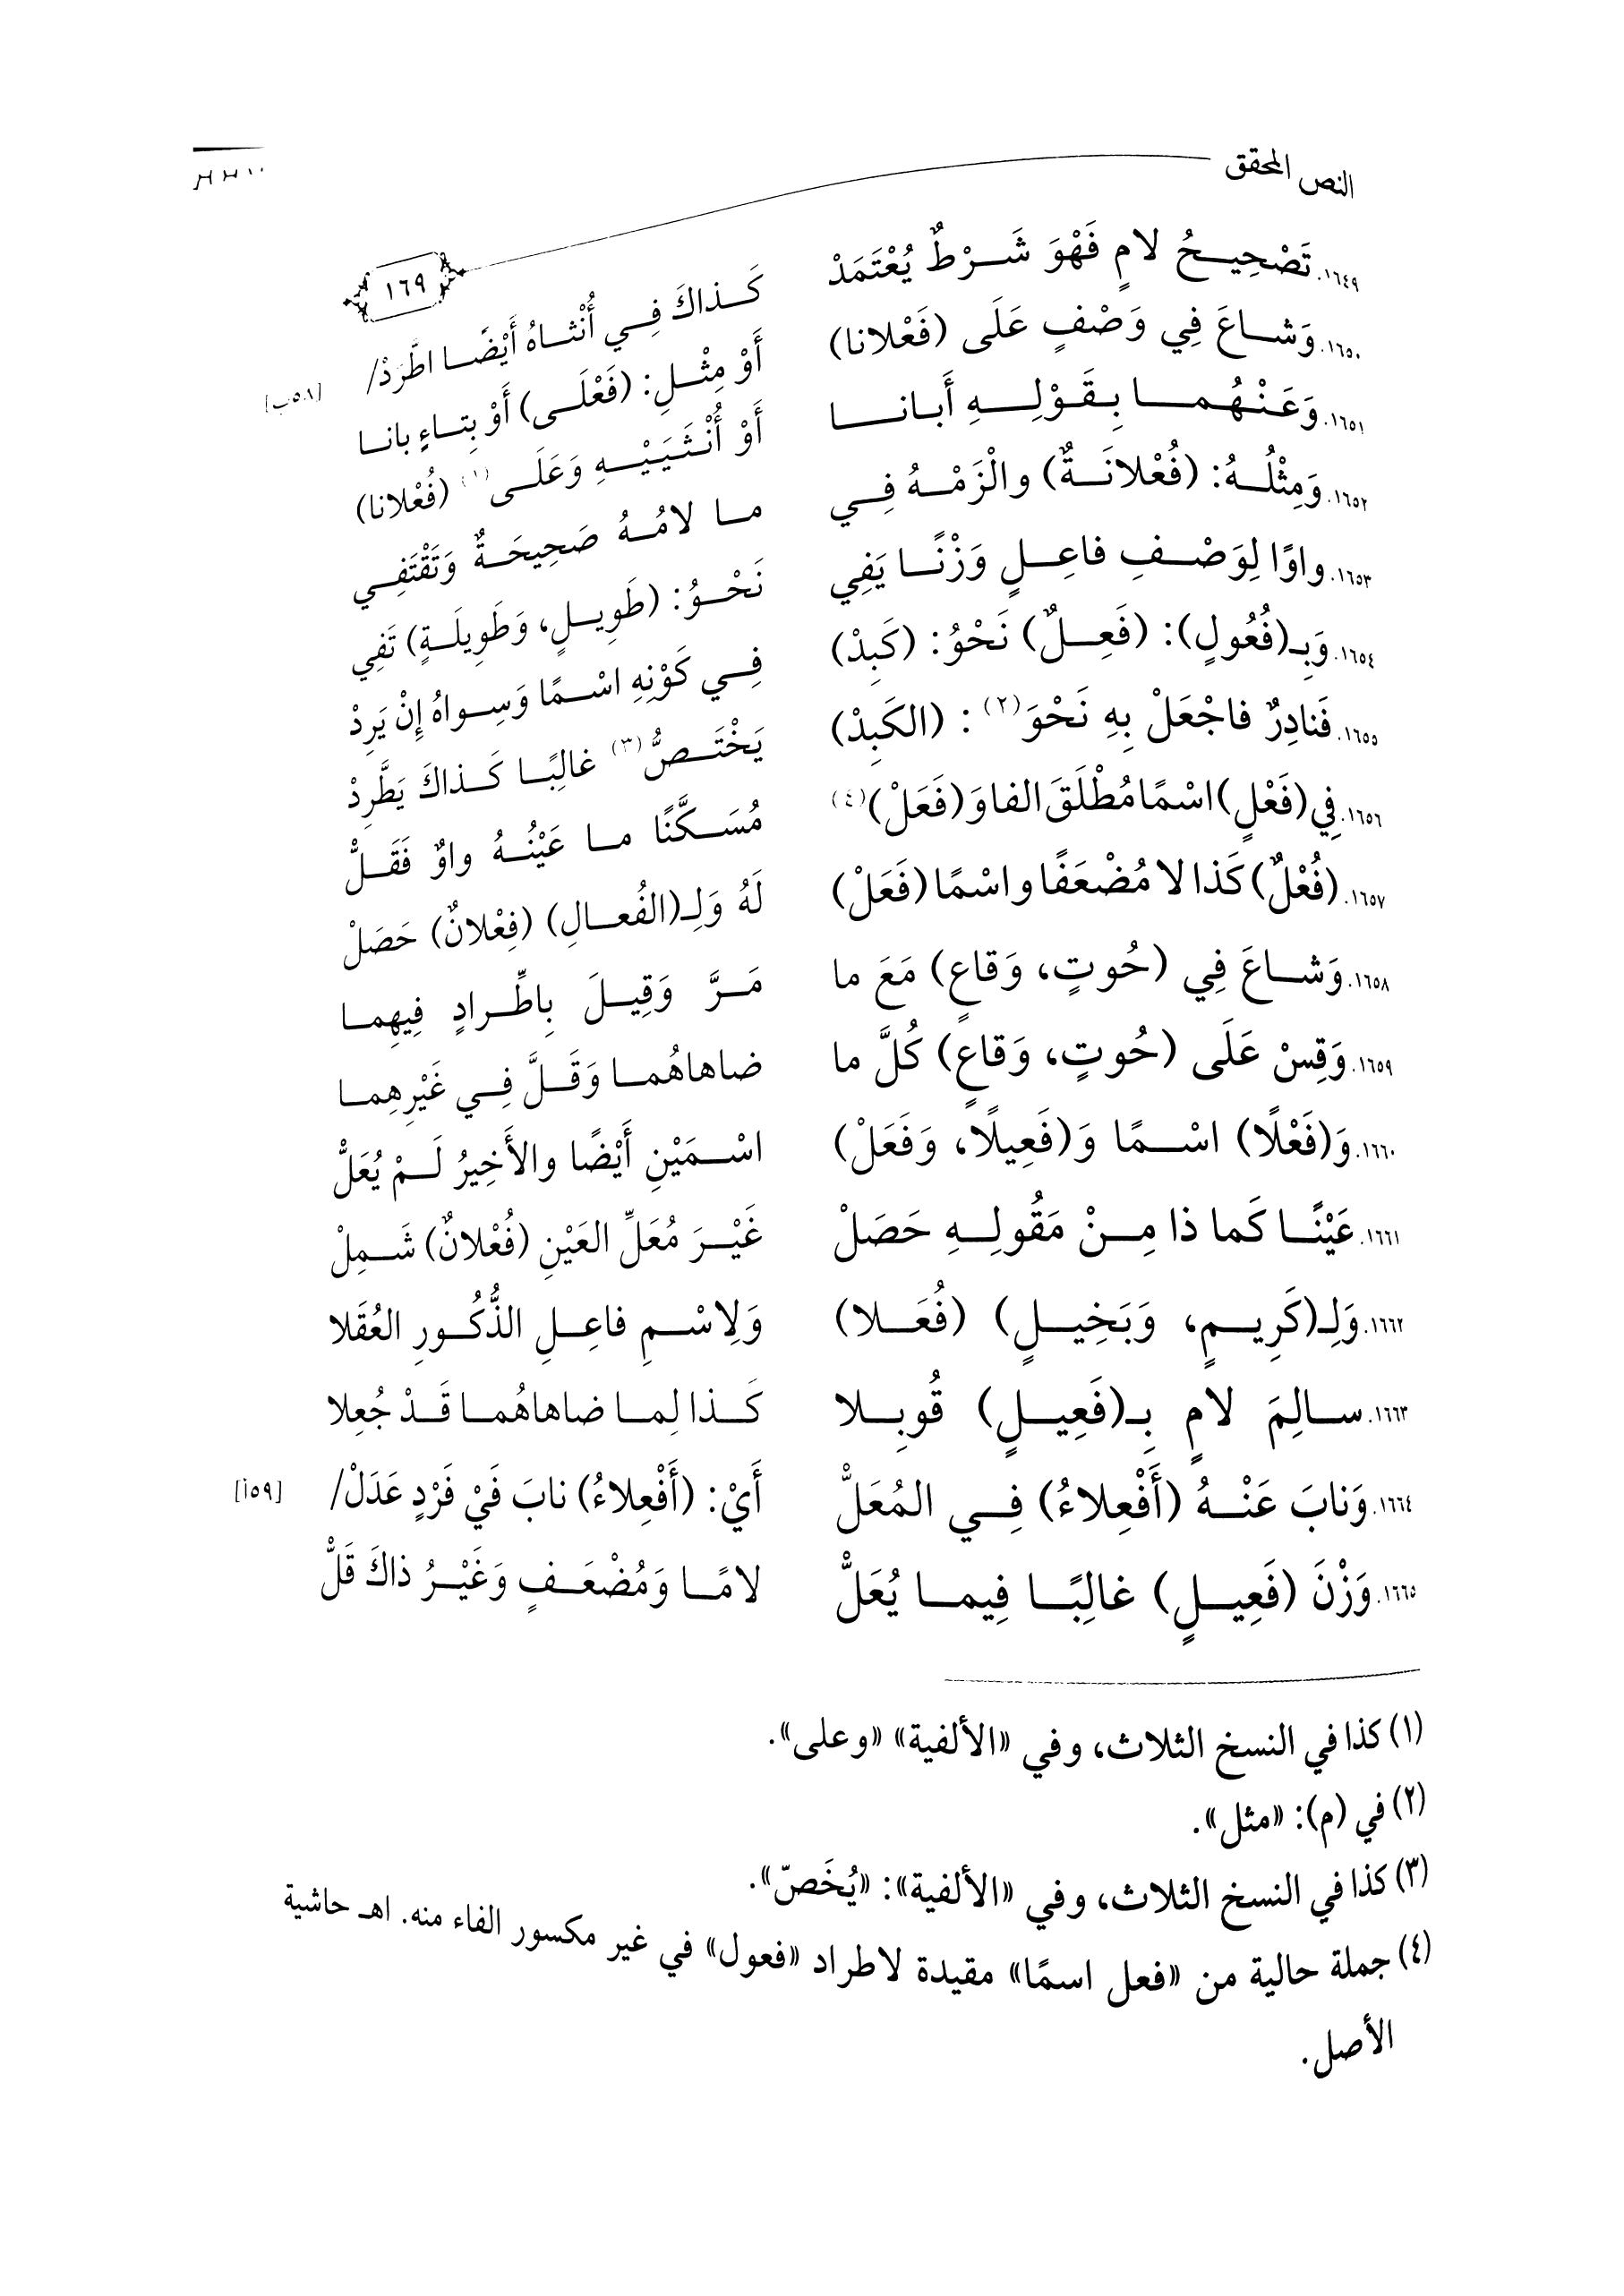 النص المحقق
١٦٩
١٦٤٩. تَصْحِيحُ لامٍ فَهْوَ شَرْطٌ يُعْتَمَدْ كَذاكَ فِي أُنْثاهُ أَيْضًا اطَّرَدْ/ [٥٨ب]
١٦٥٠. وَشاعَ فِي وَصْفٍ عَلَى (فَعْلانا) أَوْ مِثْلِ: (فَعْلَى) أَوْ بِتاءٍ بانا
١٦٥١. وَعَنْهُما بِقَوْلِهِ أَبانا أَوْ أُنْثَيَيْهِ وَعَلَى(١) (فُعْلانا)
١٦٥٢. وَمِثْلُهُ: (فُعْلانَةٌ) والْزَمْهُ فِي ما لامُهُ صَحِيحَةٌ وَتَقْتَفِي
١٦٥٣. واوًا لِوَصْفِ فاعِلٍ وَزْنًا يَفِي نَحْوُ: (طَوِيلٍ، وَطَوِيلَةٍ) تَفِي
١٦٥٤. وَبِـ(فُعُولٍ): (فَعِلٌ) نَحْوُ: (كَبِدْ) فِي كَوْنِهِ اسْمًا وَسِواهُ إِنْ يَرِدْ
١٦٥٥. فَنادِرٌ فاجْعَلْ بِهِ نَحْوَ(٢): (الكَبِدْ) يَخْتَصُّ(٣) غالِبًا كَذاكَ يَطَّرِدْ
١٦٥٦. فِي (فَعْلٍ) اسْمًا مُطْلَقَ الفا وَ(فَعَلْ)(٤) مُسَكَّنًا ما عَيْنُهُ واوٌ فَقَلّْ
١٦٥٧. (فُعْلٌ) كَذا لا مُضْعَفًا واسْمًا (فَعَلْ) لَهُ وَلِـ(الفُعالِ) (فِعْلانٌ) حَصَلْ
١٦٥٨. وَشاعَ فِي (حُوتٍ، وَقاعٍ) مَعَ ما مَرَّ وَقِيلَ بِاطِّرادٍ فِيهِما
١٦٥٩. وَقِسْ عَلَى (حُوتٍ، وَقاعٍ) كُلَّ ما ضاهاهُما وَقَلَّ فِي غَيْرِهِما
١٦٦٠. وَ(فَعْلًا) اسْمًا وَ(فَعِيلًا، وَفَعَلْ) اسْمَيْنِ أَيْضًا والأَخِيرُ لَمْ يُعَلّْ
١٦٦١. عَيْنًا كَما ذا مِنْ مَقُولِهِ حَصَلْ غَيْرَ مُعَلِّ العَيْنِ (فُعْلانٌ) شَمِلْ
١٦٦٢. وَلِـ(كَرِيمٍ، وَبَخِيلٍ) (فُعَلا) وَلِاسْمِ فاعِلِ الذُّكُورِ العُقَلا
١٦٦٣. سالِمَ لامٍ بِـ(فَعِيلٍ) قُوبِلا كَذا لِما ضاهاهُما قَدْ جُعِلا
١٦٦٤. وَنابَ عَنْهُ (أَفْعِلاءُ) فِي المُعَلّْ أَيْ: (أَفْعِلاءُ) نابَ فَيْ فَرْدٍ عَدَلْ/ [٥٩أ]
١٦٦٥. وَزْنَ (فَعِيلٍ) غالِبًا فِيما يُعَلّْ لامًا وَمُضْعَفٍ وَغَيْرُ ذاكَ قَلّْ
(١) كذا في النسخ الثلاث، وفي «الألفية» «وعلى».
(٢) في (م): «مثل».
(٣) كذا في النسخ الثلاث، وفي «الألفية»: «يُخَصّ».
(٤) جملة حالية من «فعل اسمًا» مقيدة لاطراد «فعول» في غير مكسور الفاء منه. اهـ حاشية
الأصل.